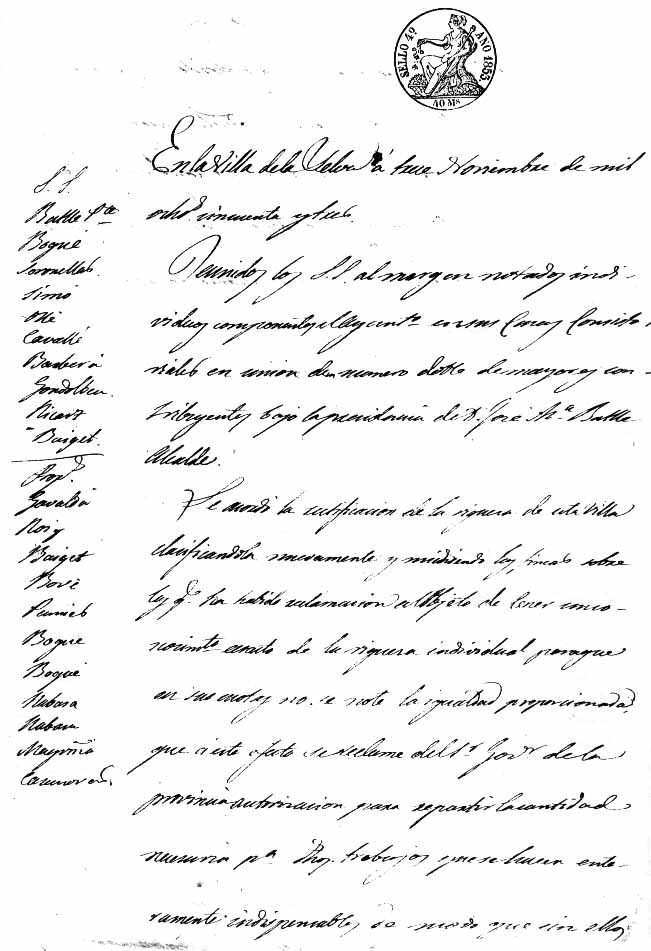 SELLO 4º AÑO 1853.
40 Ms
En la Villa de la Selva á trece Noviembre de mil
ochos cincuenta y tres.
Reunidos los S.S. al margen notados indi-
viduos componentes el Ayuntº en sus Casas Consisto
riales en union de un numero doble de mayores con-
tribuyentes bajo la presidencia de D. José Mª Batlle
Alcalde.
Se acordó la rectificacion de la riquera de esta Villa
clasificandola nuevamente y midiendo las fincas sobre
las q.e ha habido reclamacion al objeto de tener cono-
nocimtº exacto de la riquera individual para que
en sus cuotas no se note la igualdad proporcionada,
que á este efecto se reclame del Sr Govr de la
provincia autorizacion para repartir la cantidad
necesaria pª dhos trabajos que se hacen ente-
ramente indispensables de modo que sin ellos
S. S.
Batlle Pte
Bogué
Simó
Olle
Cavallé
Barberá
Ricart
Baiget
Prop.s
Gavaldá
Roig
Baiget
Bové
Bogue
Bogué
Nabasa
Nabasa